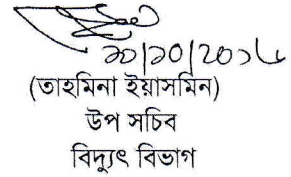 ২১/১০/২০১৮
(তাহমিনা ইয়াসমিন)
উপ সচিব
বিদ্যুৎ বিভাগ